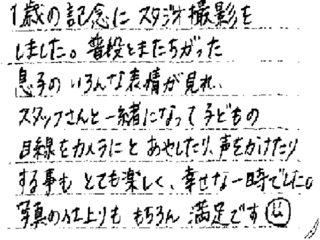 1歳の記念に スタジオ撮影を
しました。普段とまたちがった
息子の いろんな表情が見れ、
スタッフさんと一緒になって 子どもの
目線をカメラにと あやしたり、声をかけたり
する事も とても楽しく、幸せな一時でした。
写真の仕上りも もちろん 満足です